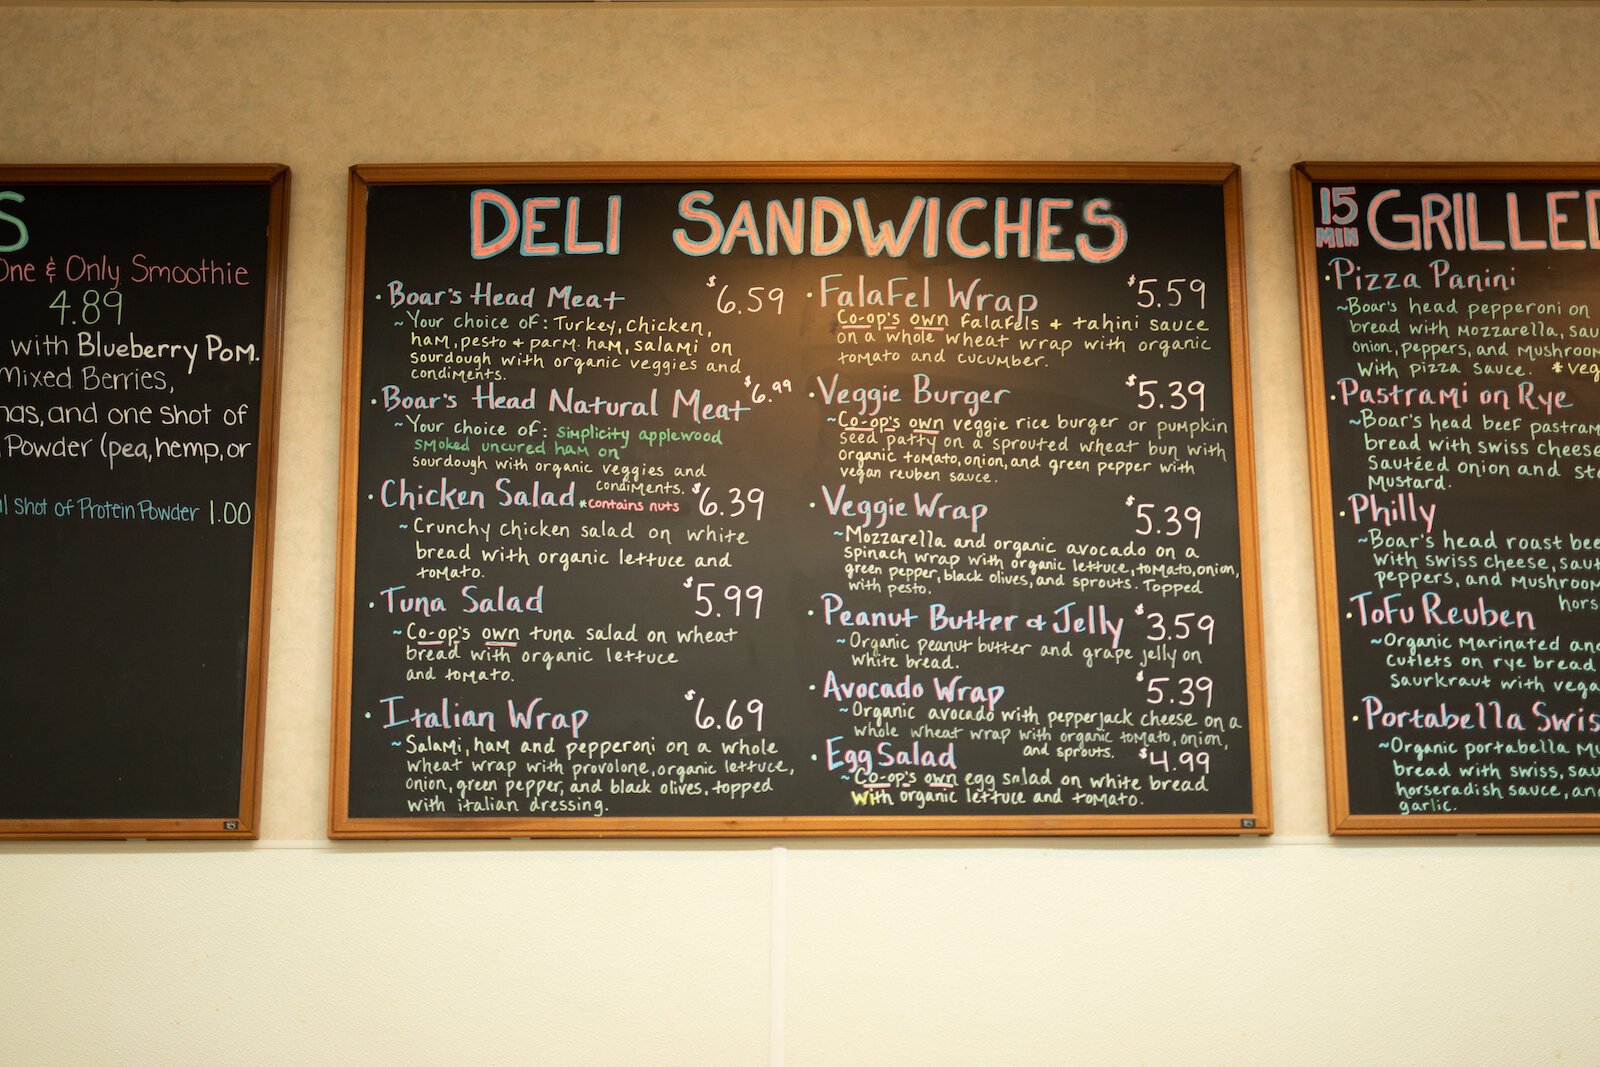 S
One & Only Smoothie
4.89
with Blueberry Pom.
Mixed Berries,
nas, and one shot of
Powder (pea, hemp, or
l Shot of Protein Powder 1.00
DELI SANDWICHES
· Boar's Head Meat $6.59
~ Your choice of: Turkey, chicken,
ham, pesto + parm. ham, salami on
sourdough with organic veggies and
condiments.
· Boar's Head Natural Meat $6.99
~ Your choice of: simplicity applewood
smoked uncured ham on
sourdough with organic veggies and
condiments.
· Chicken Salad *contains nuts $6.39
~ Crunchy chicken salad on white
bread with organic lettuce and
tomato.
· Tuna Salad $5.99
~ Co-op's own tuna salad on wheat
bread with organic lettuce
and tomato.
· Italian Wrap $6.69
~ Salami, ham and pepperoni on a whole
wheat wrap with provolone, organic lettuce,
onion, green pepper, and black olives, topped
with italian dressing.
· Falafel Wrap $5.59
Co-op's own falafels + tahini sauce
on a whole wheat wrap with organic
tomato and cucumber.
· Veggie Burger $5.39
~ Co-op's own veggie rice burger or pumpkin
seed patty on a sprouted wheat bun with
organic tomato, onion, and green pepper with
vegan reuben sauce.
· Veggie Wrap $5.39
~ Mozzarella and organic avocado on a
spinach wrap with organic lettuce, tomato, onion,
green pepper, black olives, and sprouts. Topped
with pesto.
· Peanut Butter & Jelly $3.59
~ Organic peanut butter and grape jelly on
white bread.
· Avocado Wrap $5.39
~ Organic avocado with pepperjack cheese on a
whole wheat wrap with organic tomato, onion,
and sprouts.
· Egg Salad $4.99
~ Co-op's own egg salad on white bread
with organic lettuce and tomato.
15 MIN GRILLED
· Pizza Panini
~ Boar's head pepperoni on
bread with mozzarella, sau
onion, peppers, and mushroom
with pizza sauce. *veg
· Pastrami on Rye
~ Boar's head beef pastram
bread with swiss cheese
Sautéed onion and st
Mustard.
· Philly
~ Boar's head roast bee
with swiss cheese, saut
peppers, and mushroom
hors
· Tofu Reuben
~ Organic marinated and
cutlets on rye bread
saurkraut with vega
· Portabella Swis
~ Organic portabella mu
bread with swiss, sau
horseradish sauce, an
garlic.